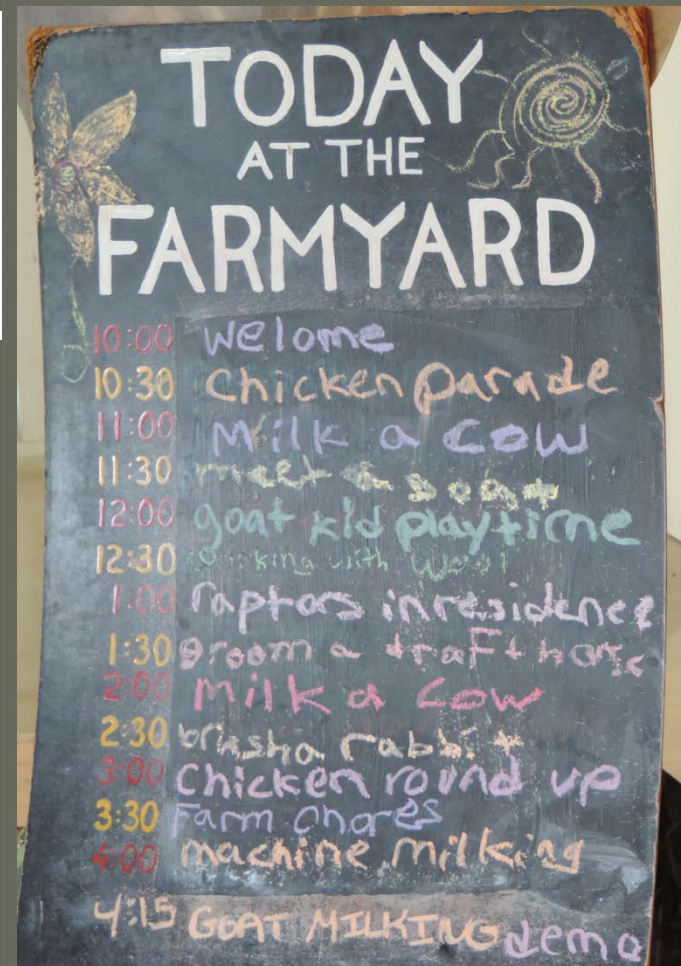 TODAY
AT THE
FARMYARD
10:00 welome
10:30 Chicken parade
11:00 Milk a cow
11:30 meet a goat
12:00 goat kid playtime
12:30 working with wool
1:00 raptors in residence
1:30 groom a draft horse
2:00 milk a cow
2:30 brush a rabbit
3:00 Chicken round up
3:30 Farm chores
4:00 machine milking
4:15 GOAT MILKING demo